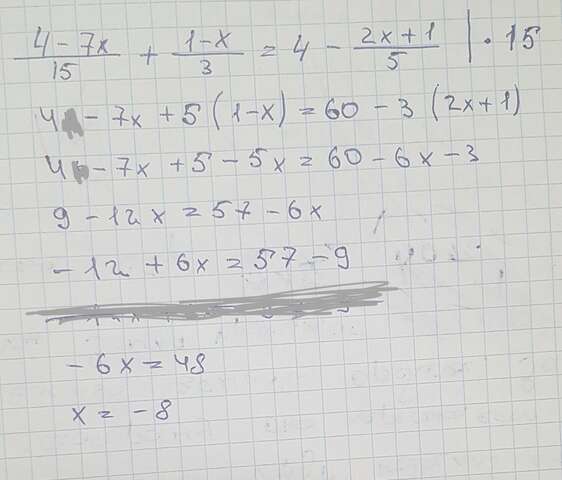 (4 - 7x)/15 + (1-x)/3 = 4 - (2x+1)/5 | · 15
4 - 7x + 5(1-x) = 60 - 3(2x+1)
4 - 7x + 5 - 5x = 60 - 6x - 3
9 - 12x = 57 - 6x
-12 + 6x = 57 - 9
-6x = 48
x = -8